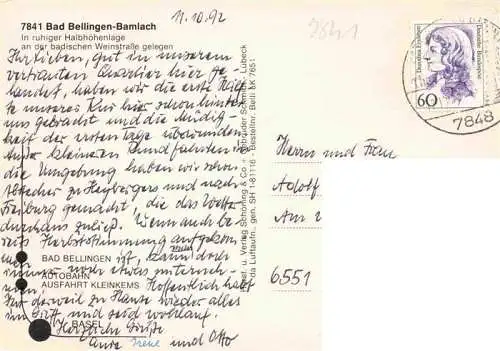 11.10.92
7841
7841 Bad Bellingen-Bamlach
In ruhiger Halbhöhenlage
an der badischen Weinstraße gelegen
Ihr Lieben, gut in unserem
vertrauten Quartier hier ge-
landet, haben wir die erste Hälf-
te unseres Kur hier schon hinter
uns gebracht und die Müdig-
keit der ersten Tage überwunden.
Kleinere Rundfahrten in
die Umgebung haben wir schon
und nach
Freiburg gemacht, die das Wetter
durchaus zuließ. Wenn auch be-
reits Herbststimmung aufgekom-
men ist, kann man doch
immer noch etwas unterneh-
men. Hoffentlich habt
Ihr derweil zu Hause wieder alles
im Griff und seid wohlauf.
Herzliche Grüße
Eure Irene und Otto
BAD BELLINGEN
AUTOBAHN
AUSFAHRT KLEINKEMS
BASEL
Schöning & Co + Gebrüder Schmidt, Lübeck
Luftaufn., gen. SH 1-81116 - Bestellnr. Belli SK 7651
Deutsche Bundespost
60
7848
Herrn und Frau
Adolf
Am
6551